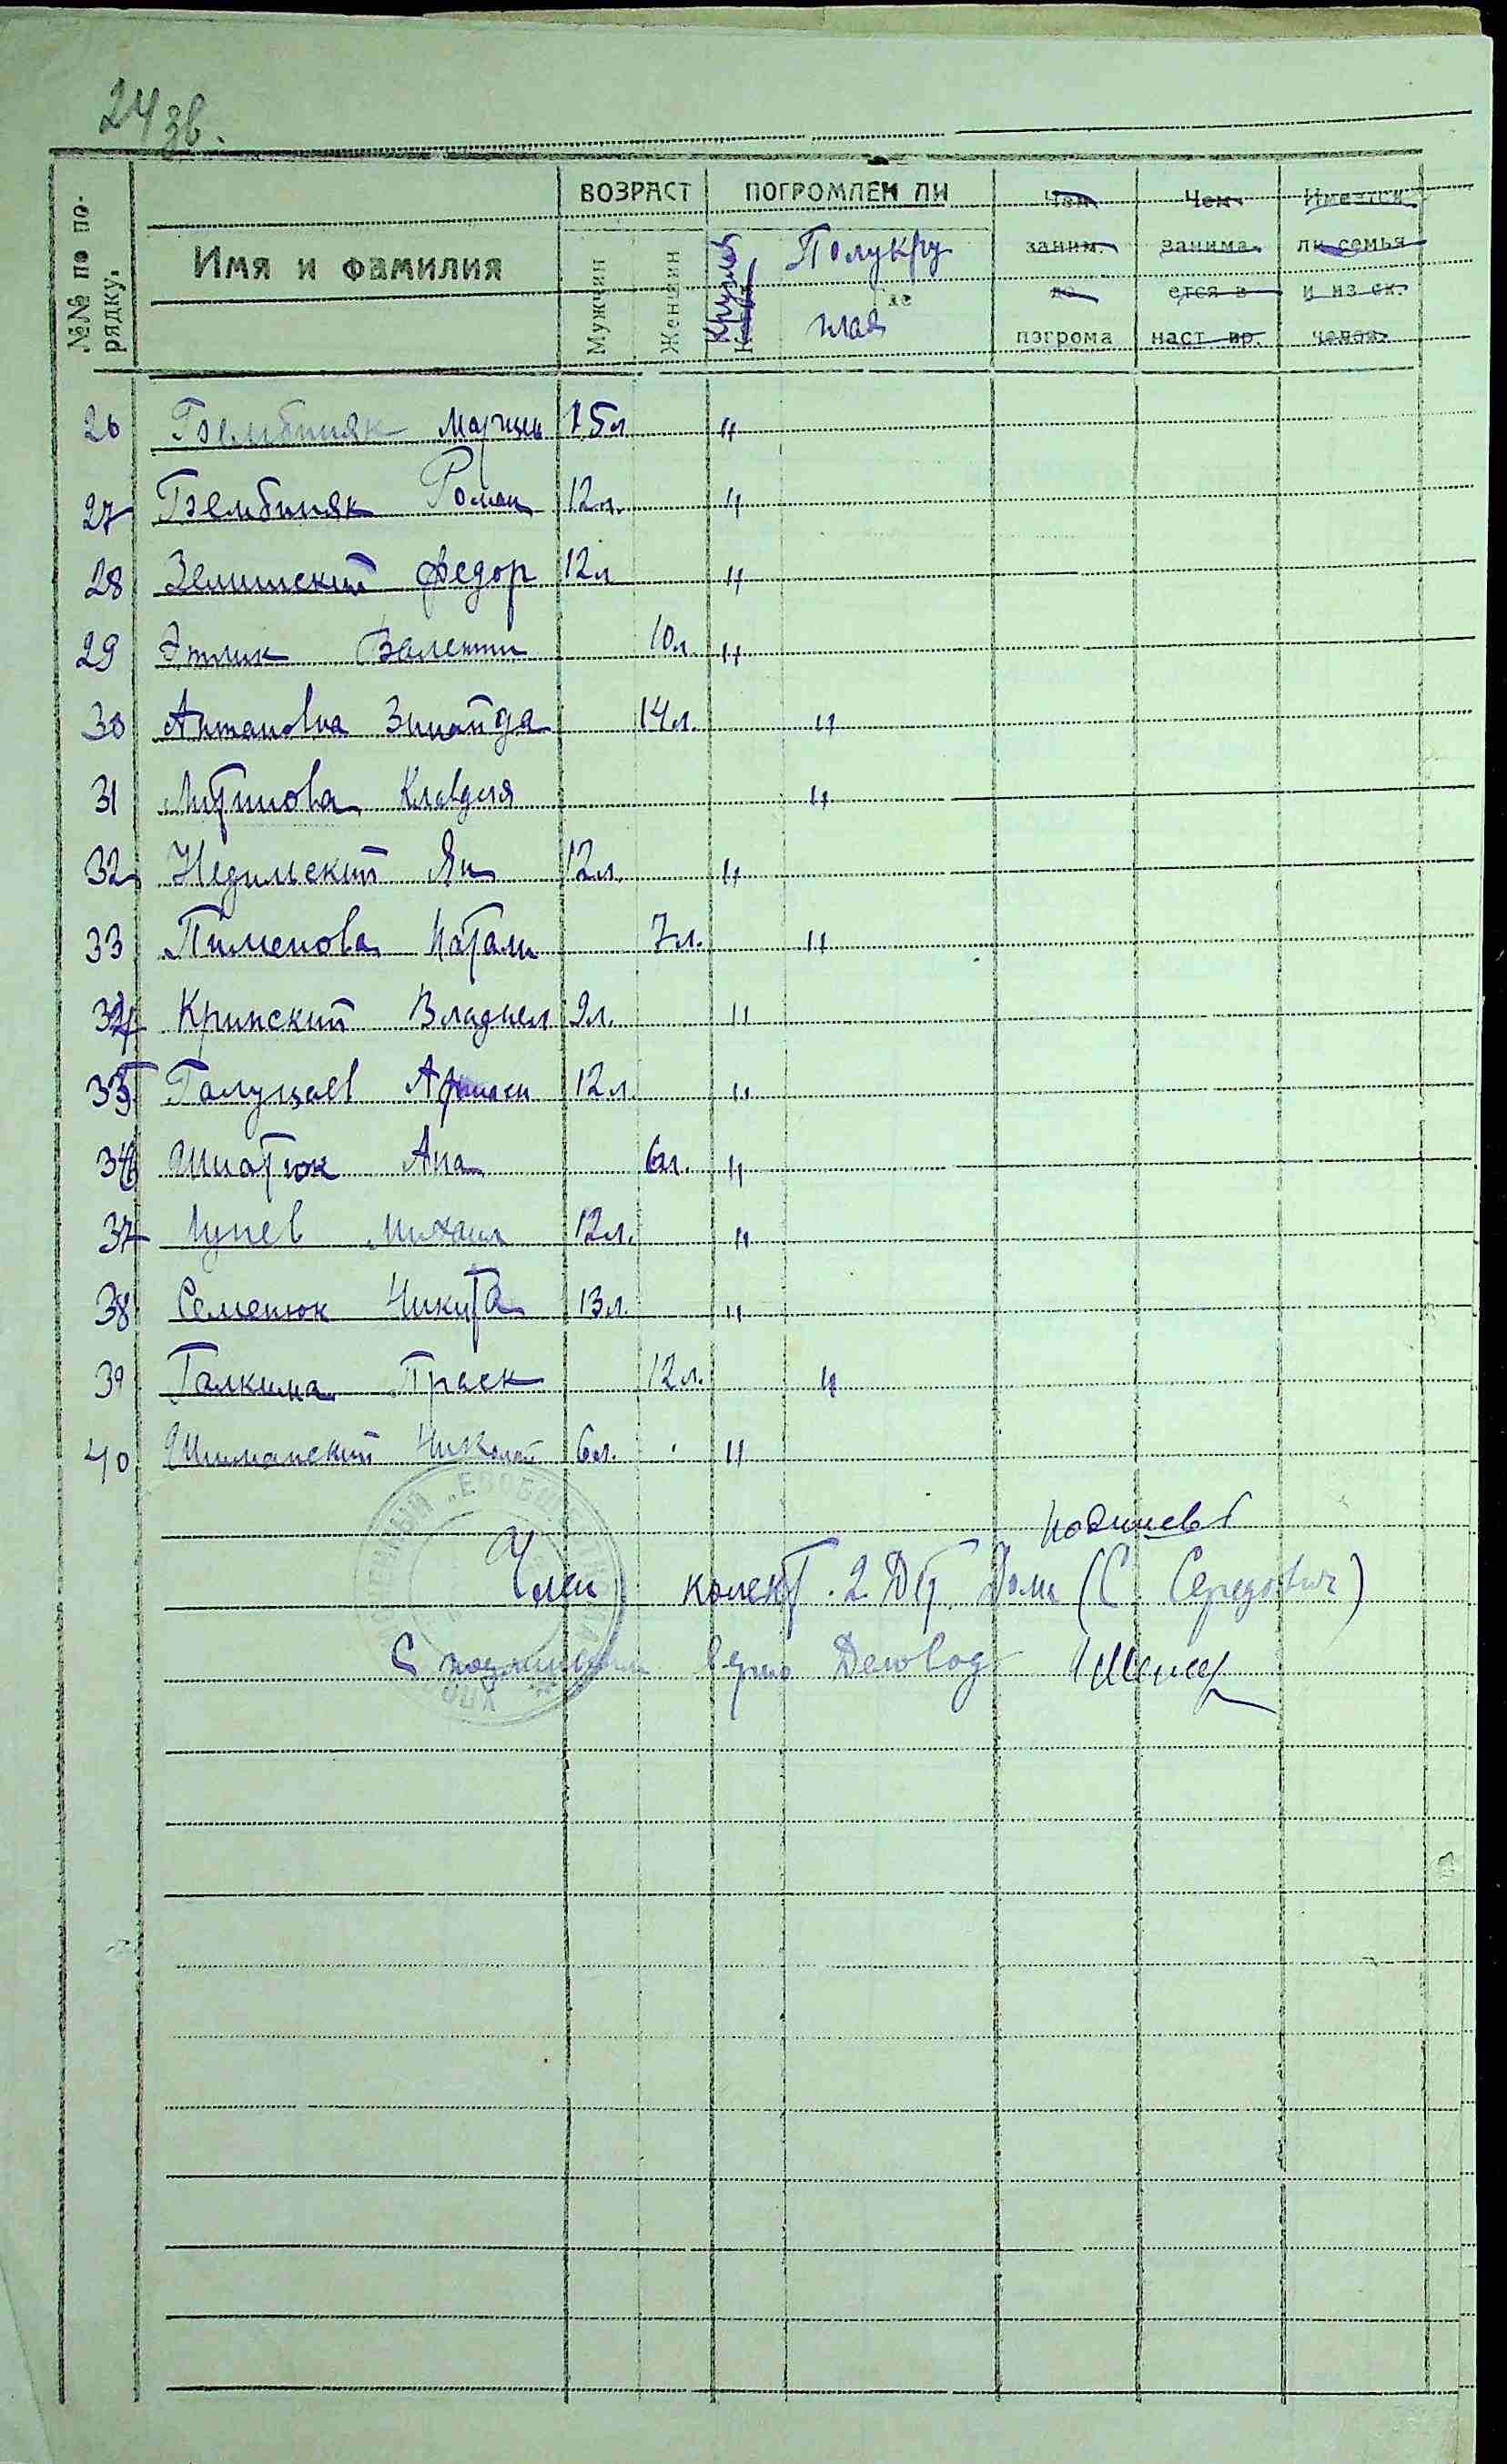 24 зв.
№№ по порядку.
Имя и фамилия
ВОЗРАСТ
Мужчин
Женщин
ПОГРОМЛЕН ЛИ
Круглая
Полукру
глая
Чем
заним.
до
погрома
Чем
занима-
ется в
наст. вр.
Имеется
ли семья
и из ск.
челов.
26 Гжембпияк Марцел 15л "
27 Гжембпияк Роман 12л. "
28 Зелинский Федор 12л "
29 Этлик Валентин 10л "
30 Антановна Зинайда 14л. "
31 Мартинова Клавдия "
32 Недильский Ян 12л. "
33 Пименова Натали 7л. "
34 Кринский Владисл 9л. "
35 Голуцаев 12л. "
36 Игнатюк Ана 6л. "
37 Михаил 12л. "
38 Семенюк Никита 13л. "
39 Галкина Праск 12л. "
40 Шиманский Николай 6л. "
Член колект. 2 Дет. Дома (С. Середович)
С подлинным верно Деловод